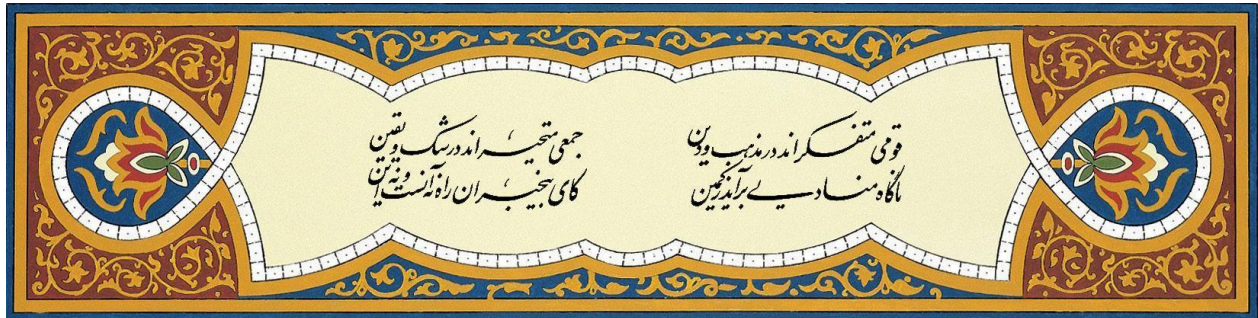 قومی متفکراند در مذهب و دین
جمعی متحیراند در شک و یقین
ناگاه منادیی برآید ز کمین
کای بیخبران راه نه آنست و نه این